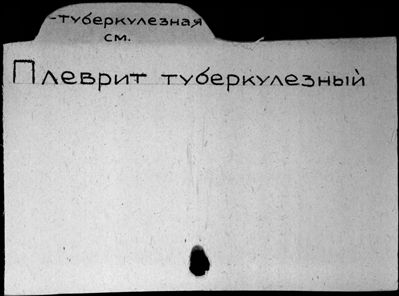 -туберкулезная
см.
Плеврит туберкулезный